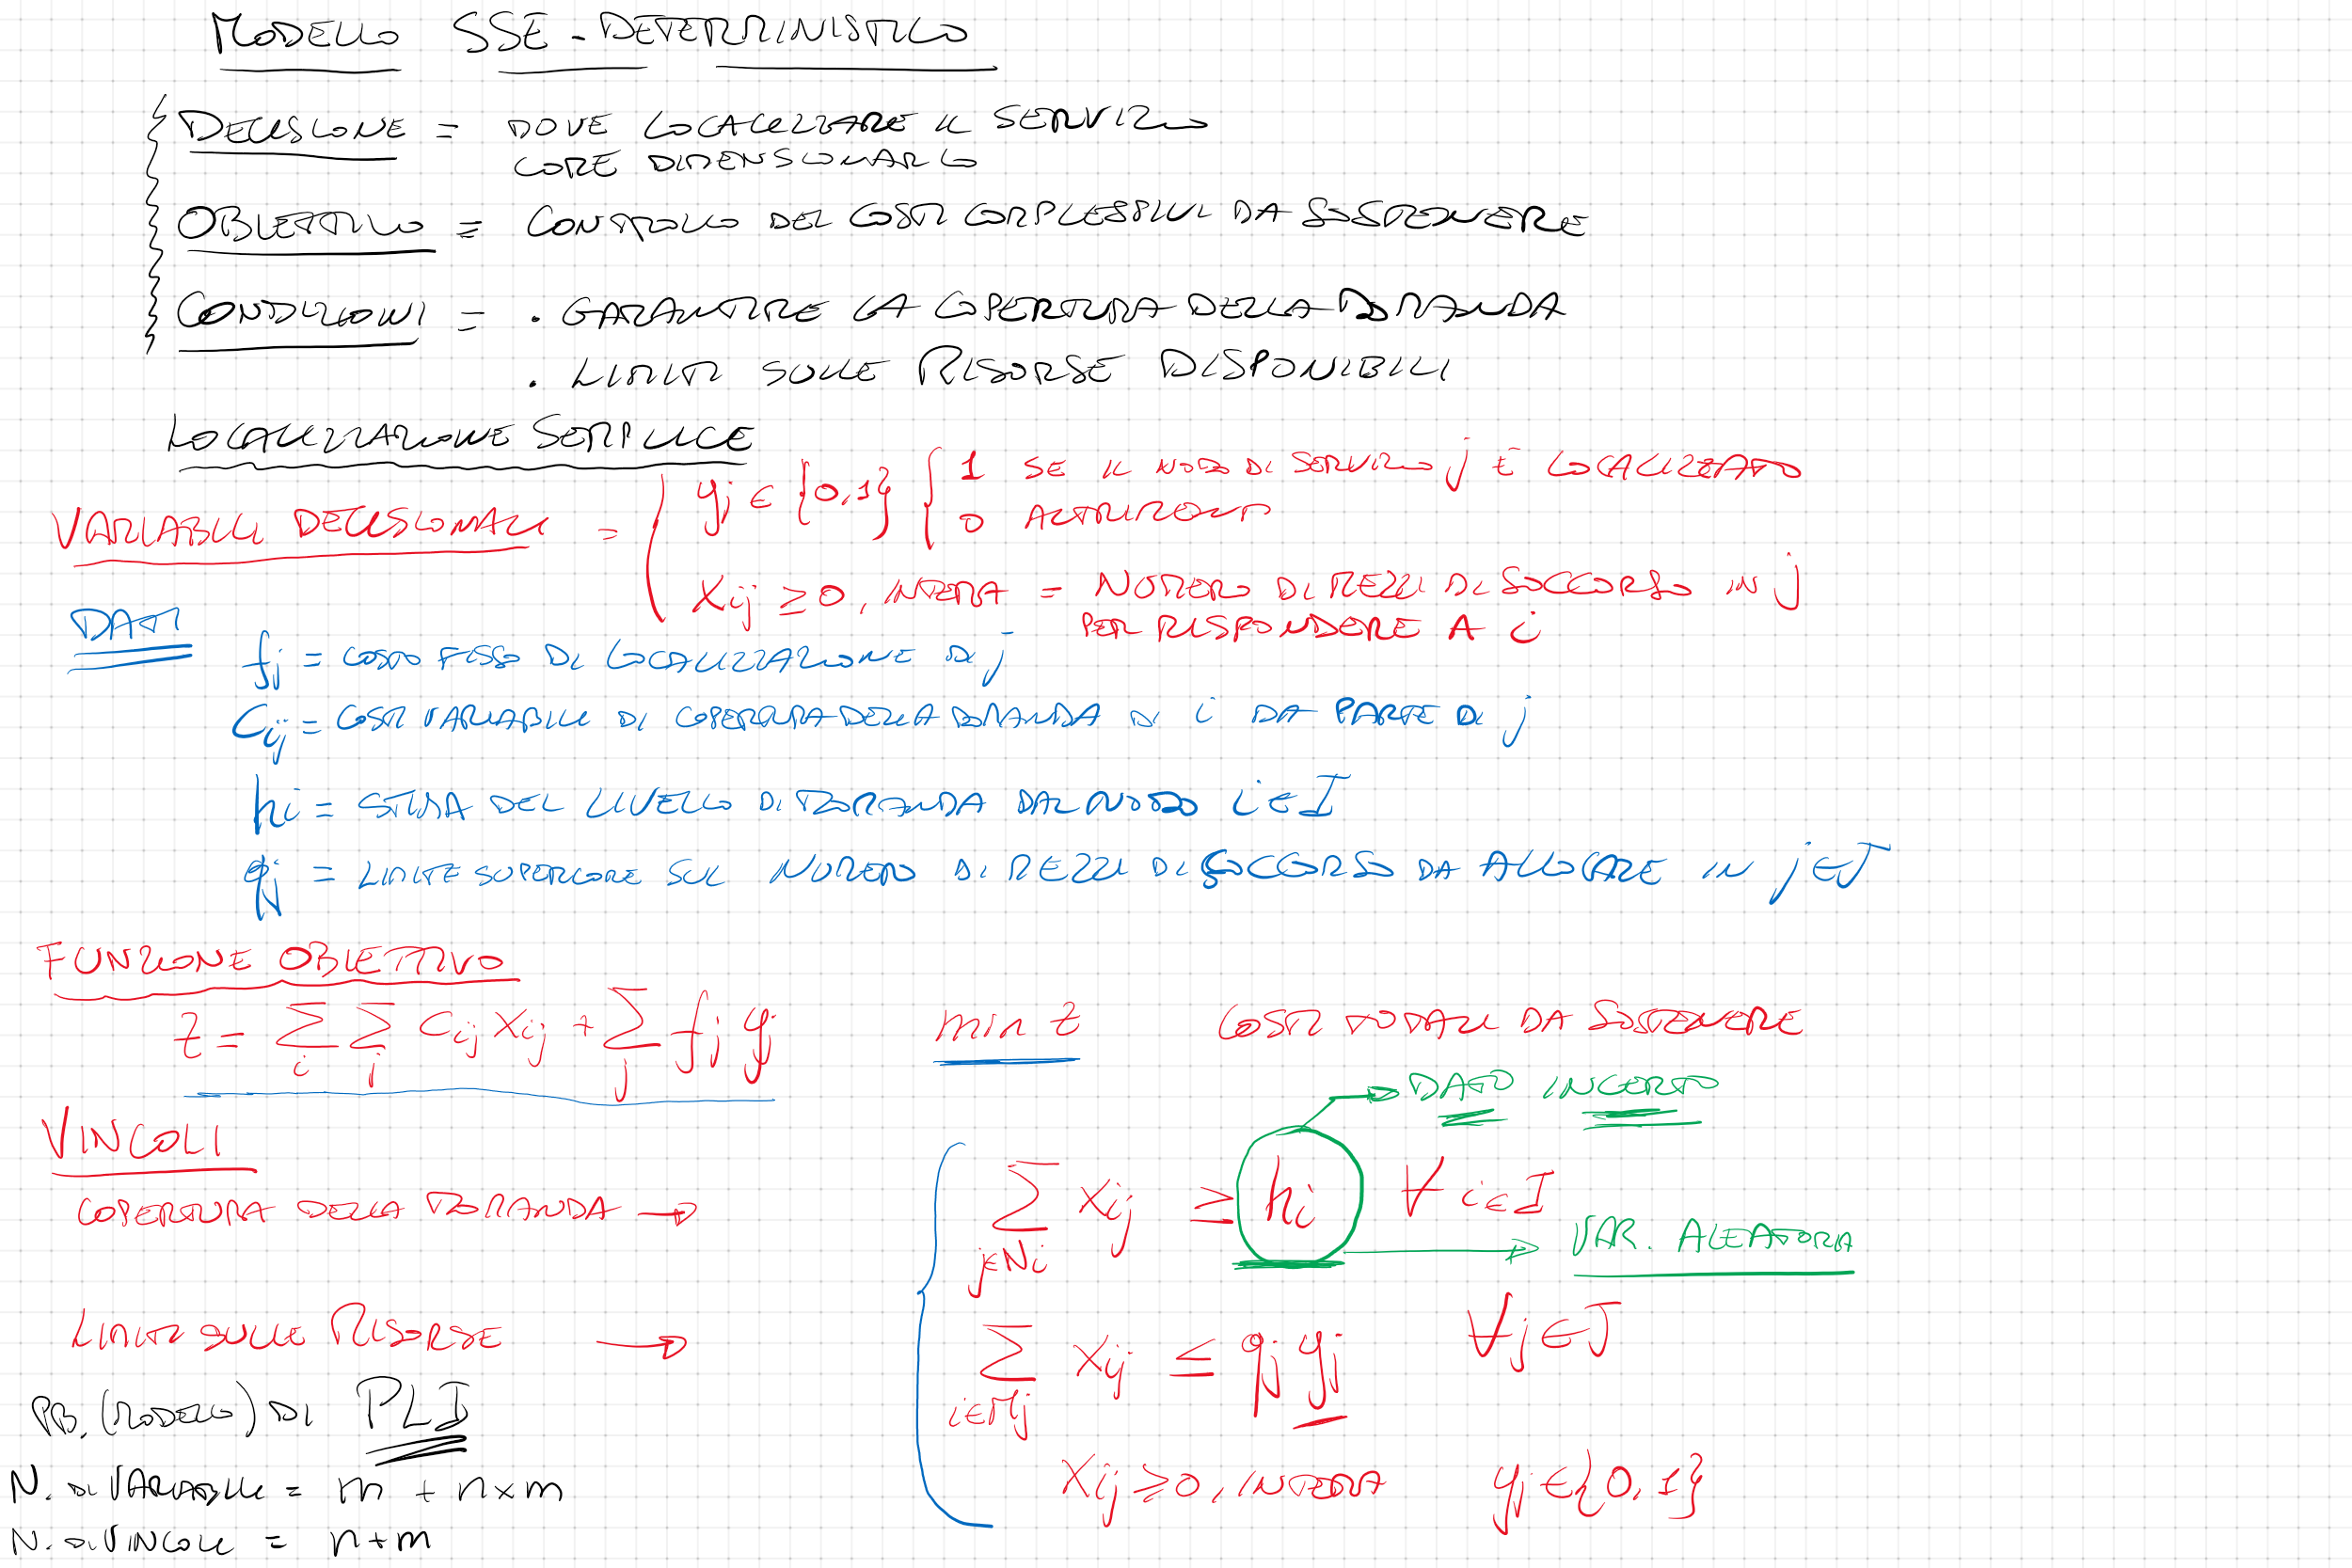 MODELLO SSE - DETERMINISTICO
DECISIONE = DOVE LOCALIZZARE IL SERVIZIO
COME DIMENSIONARLO
OBIETTIVO = CONTROLLO DEI COSTI COMPLESSIVI DA SOSTENERE
CONDIZIONI = . GARANTIRE LA COPERTURA DELLA DOMANDA
. LIMITI SULLE RISORSE DISPONIBILI
LOCALIZZAZIONE SEMPLICE
VARIABILI DECISIONALI = ( yj ∈ {0,1} { 1 SE IL NODO DI SERVIZIO j È LOCALIZZATO
0 ALTRIMENTI
xij ≥ 0, INTERA = NUMERO DI MEZZI DI SOCCORSO IN j
PER RISPONDERE A i
DATI
fj = COSTO FISSO DI LOCALIZZAZIONE DI j
Cij = COSTI VARIABILI DI COPERTURA DELLA DOMANDA DI i DA PARTE DI j
hi = STIMA DEL LIVELLO DI DOMANDA DAL NODO i ∈ I
qj = LIMITE SUPERIORE SUL NUMERO DI MEZZI DI SOCCORSO DA ALLOCARE IN j ∈ J
FUNZIONE OBIETTIVO
z = Σi Σj Cij Xij + Σj fj yj min z COSTI TOTALI DA SOSTENERE
DATO INCERTO
VINCOLI
COPERTURA DELLA DOMANDA → Σ j∈Ni Xij ≥ hi ∀ i∈I
VAR. ALEATORIA
LIMITI SULLE RISORSE → Σ i∈Mj Xij ≤ qj yj ∀ j∈J
PB. (MODELLO) DI PLI
N. DI VARIABILI = m + n×m
Xij ≥ 0, INTERA yj ∈ {0,1}
N. DI VINCOLI = n+m